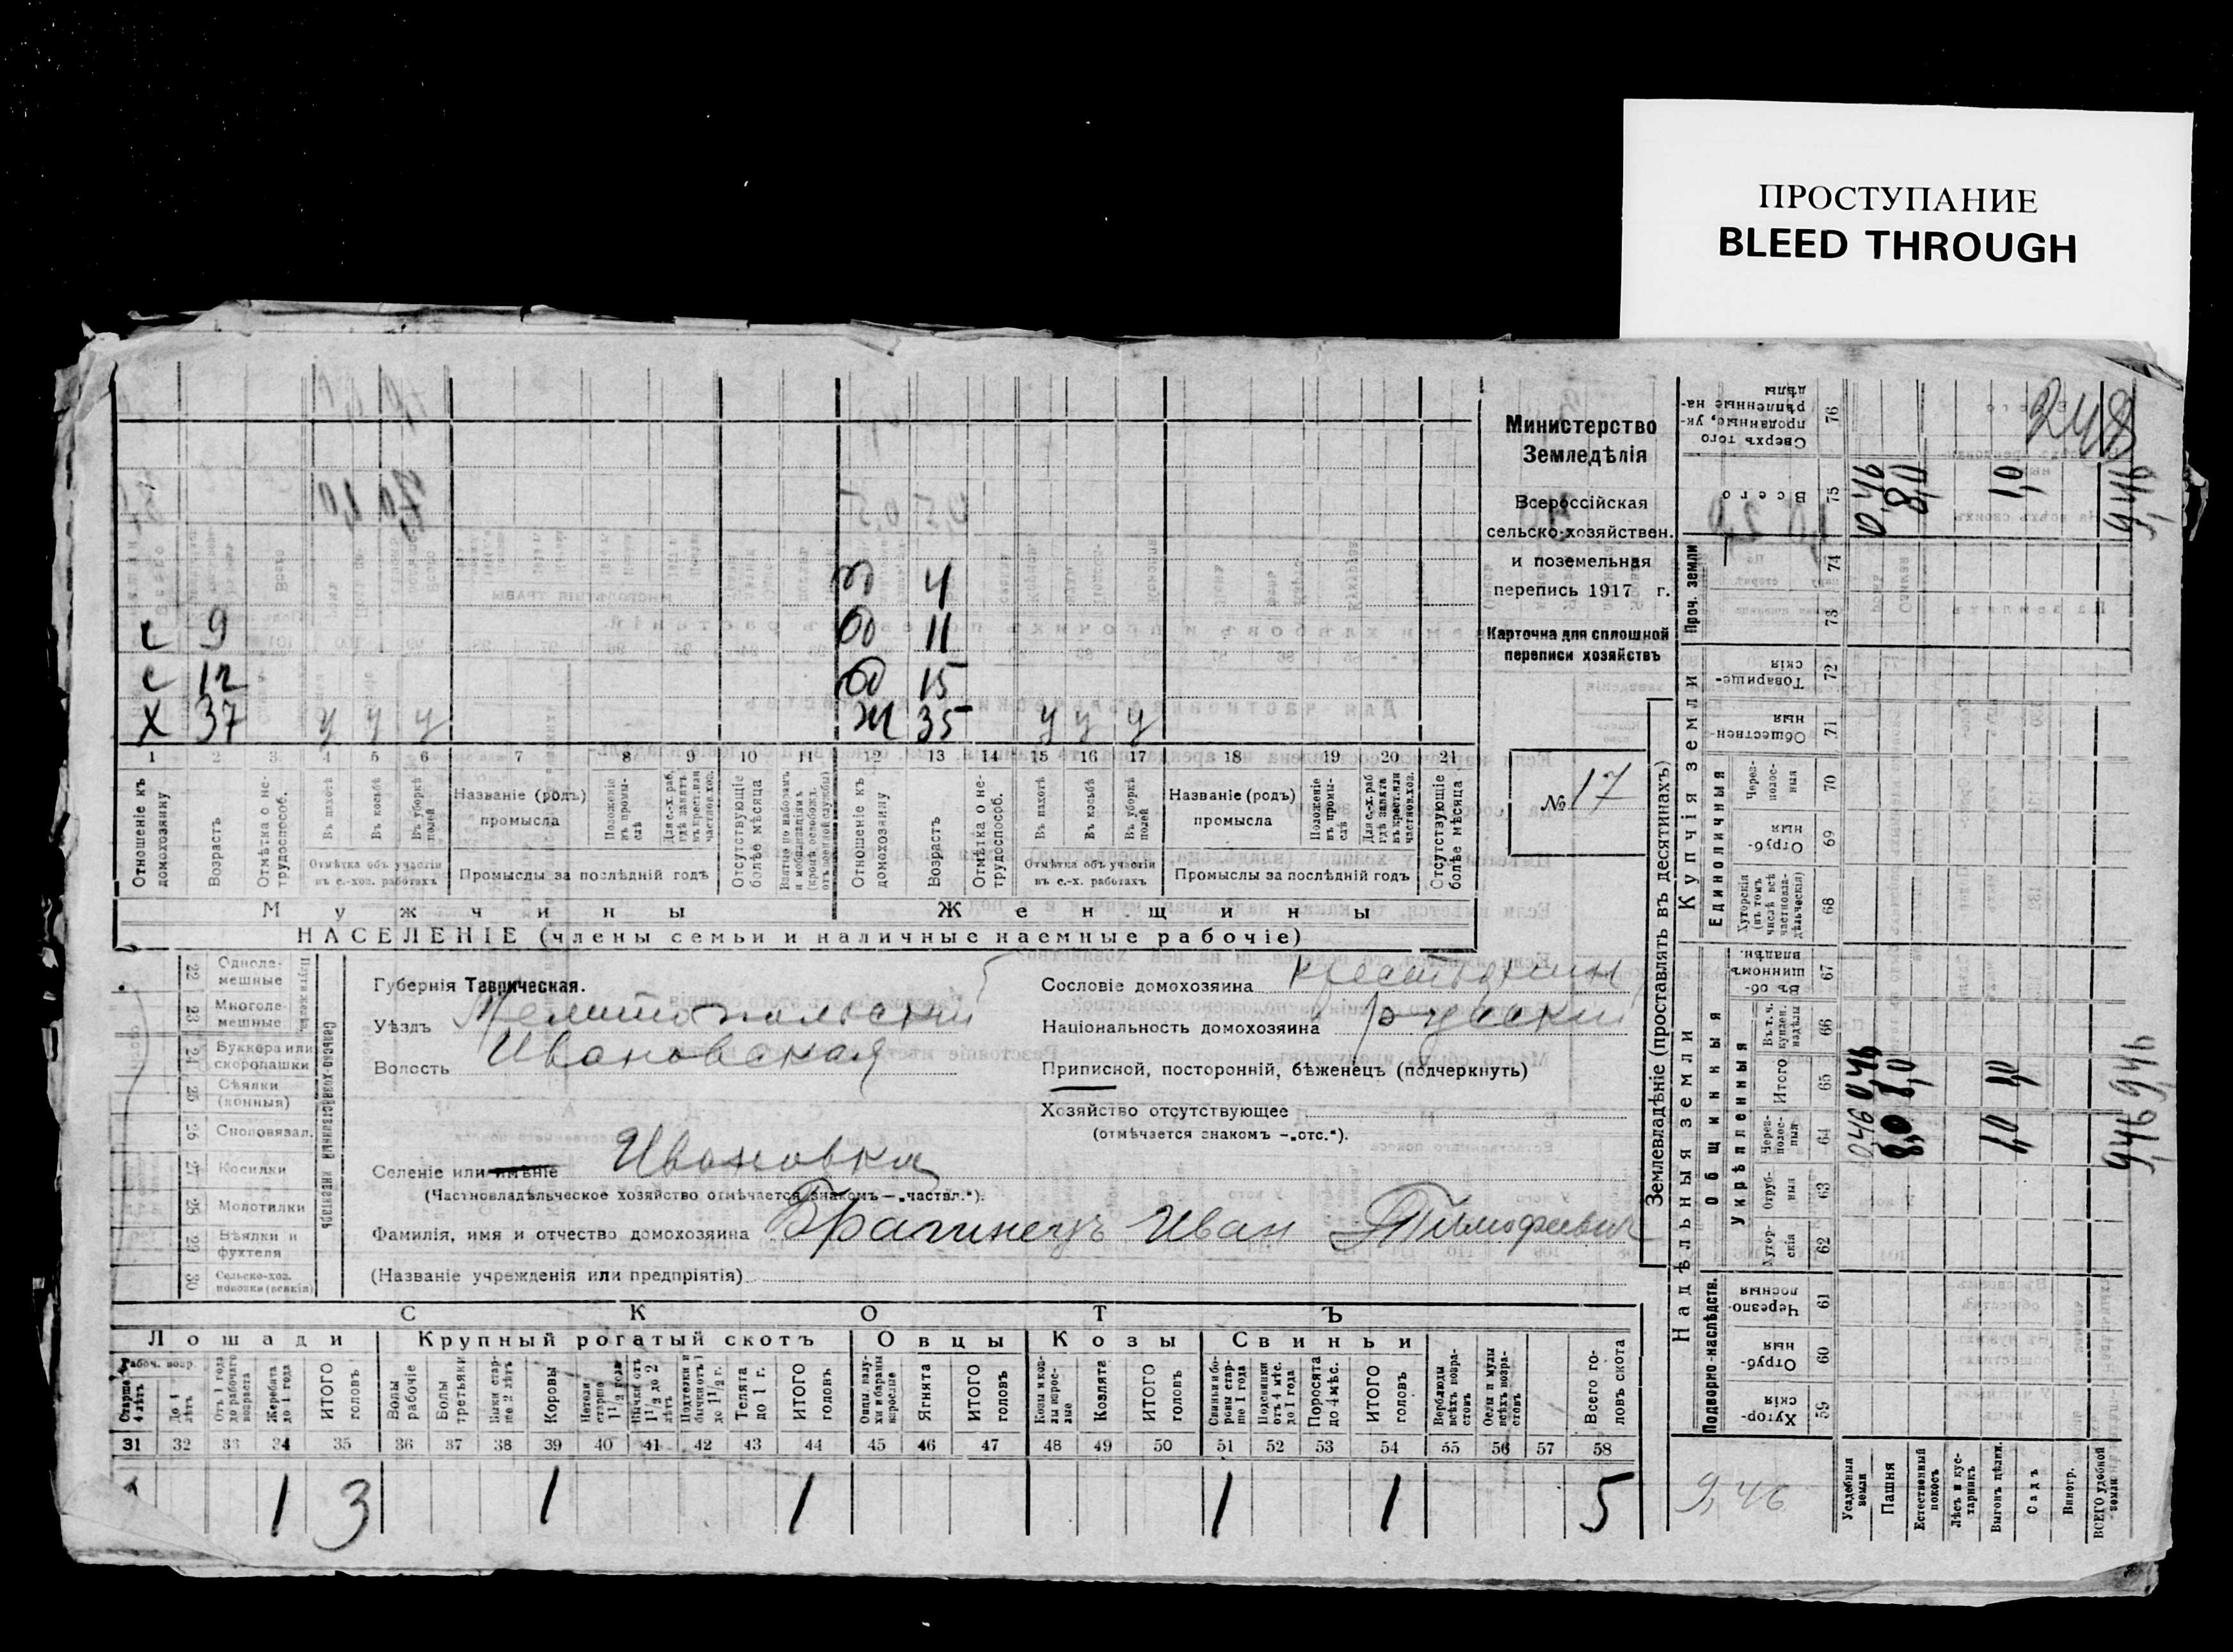 ПРОСТУПАНИЕ
BLEED THROUGH
Министерство
Земледѣлія
Всероссійская
сельско-хозяйствен.
и поземельная
перепись 1917 г.
Карточка для сплошной
переписи хозяйствъ
№ 17
248
т 4
с 9 до 11
с 12 до 15
х 37 у у у ж 35 у у у
1 2 3 4 5 6 7 8 9 10 11 12 13 14 15 16 17 18 19 20 21
Отношеніе къ домохозяину
Возрастъ
Отмѣтка о нетрудоспособ.
Въ пахотѣ
Въ косьбѣ
Въ уборкѣ полей
Отмѣтка объ участіи въ с.-хоз. работахъ
Названіе (родъ) промысла
Положеніе въ промыслѣ
Для с.-х. раб. гдѣ занятъ въ крест. или частнов. хоз.
Промыслы за послѣдній годъ
Отсутствующіе болѣе мѣсяца
Взятые по наборамъ и мобилизаціямъ (кромѣ освобожд. отъ военной службы)
Отношеніе къ домохозяину
Возрастъ
Отмѣтка о нетрудоспособ.
Въ пахотѣ
Въ косьбѣ
Въ уборкѣ полей
Отмѣтка объ участіи въ с.-х. работахъ
Названіе (родъ) промысла
Положеніе въ промыслѣ
Для с.-х. раб. гдѣ занята въ крест. или частнов. хоз.
Промыслы за послѣдній годъ
Отсутствующіе болѣе мѣсяца
Мужчины Женщины
НАСЕЛЕНІЕ (члены семьи и наличные наемные рабочіе)
22 Однолемешные
23 Многолемешные
24 Буккера или скоропашки
25 Сѣялки (конныя)
26 Сноповязал.
27 Косилки
28 Молотилки
29 Вѣялки и фухтеля
30 Сельско-хоз. повозки (всякія)
Сельско-хозяйственный инвентарь
Губернія Таврическая.
Уѣздъ Мелитопольский
Волость Ивановская
Селеніе или имѣніе Ивановка
(Частновладѣльческое хозяйство отмѣчается знакомъ — „частвл.“).
Фамилія, имя и отчество домохозяина Брагинецъ Иван Тимофеевич
(Названіе учрежденія или предпріятія)
Сословіе домохозяина крестьянин
Національность домохозяина русский
Приписной, посторонній, бѣженецъ (подчеркнуть)
Хозяйство отсутствующее
(отмѣчается знакомъ —„отс.“).
СКОТЪ
Лошади Крупный рогатый скотъ Овцы Козы Свиньи
Рабоч. возр.
Старше 4 лѣтъ
До 4 лѣтъ
Отъ 1 года до рабочаго возраста
Жеребята до 1 года
ИТОГО головъ
Волы рабочіе
Волы третьяки
Быки старше 2 лѣтъ
Коровы
Нетели старше 1 1/2 года
Бычки отъ 1 1/2 до 2 лѣтъ
Подтелки и бычки отъ 1 до 1 1/2 г.
Телята до 1 г.
ИТОГО головъ
Овцы, валухи и бараны взрослые
Ягнята
ИТОГО головъ
Козы и козлы взрослые
Козлята
ИТОГО головъ
Свиньи и боровы старше 1 года
Подсвинки отъ 4 мѣс. до 1 года
Поросята до 4 мѣс.
ИТОГО головъ
Верблюды всѣхъ возрастовъ
Ослы и мулы всѣхъ возрастовъ
Всего головъ скота
31 32 33 34 35 36 37 38 39 40 41 42 43 44 45 46 47 48 49 50 51 52 53 54 55 56 57 58
1 3 1 1 1 1 5
Землевладѣніе (проставлять въ десятинахъ)
Надѣльныя земли Купчія земли Проч. земли
Подворно-наслѣдств.
Общинныя
Укрѣпленныя
Единоличныя
Хуторскія 59
Отрубныя 60
Черезполосныя 61
Хуторскія 62
Отрубныя 63
Черезполосныя 64
Итого 65
Въ т. ч. куплен. надѣлы 66
Въ общинномъ владѣн. 67
Хуторскія (въ томъ числѣ всѣ частновладѣльческія) 68
Отрубныя 69
Черезполосныя 70
Общественныя 71
Товарищескія 72
73
74
Всего 75
Сверхъ того проданные, укрѣпленные надѣлы 76
Усадебныя земли 0,46 0,46 0,46
Пашня 8,0 8,0 8,0
Естественный покосъ
Лѣсъ и кустарникъ
Выгонъ цѣлин. 1,0 1,0 1,0
Садъ
Виногр.
ВСЕГО удобной земли 9,46 9,46 9,46
9,46